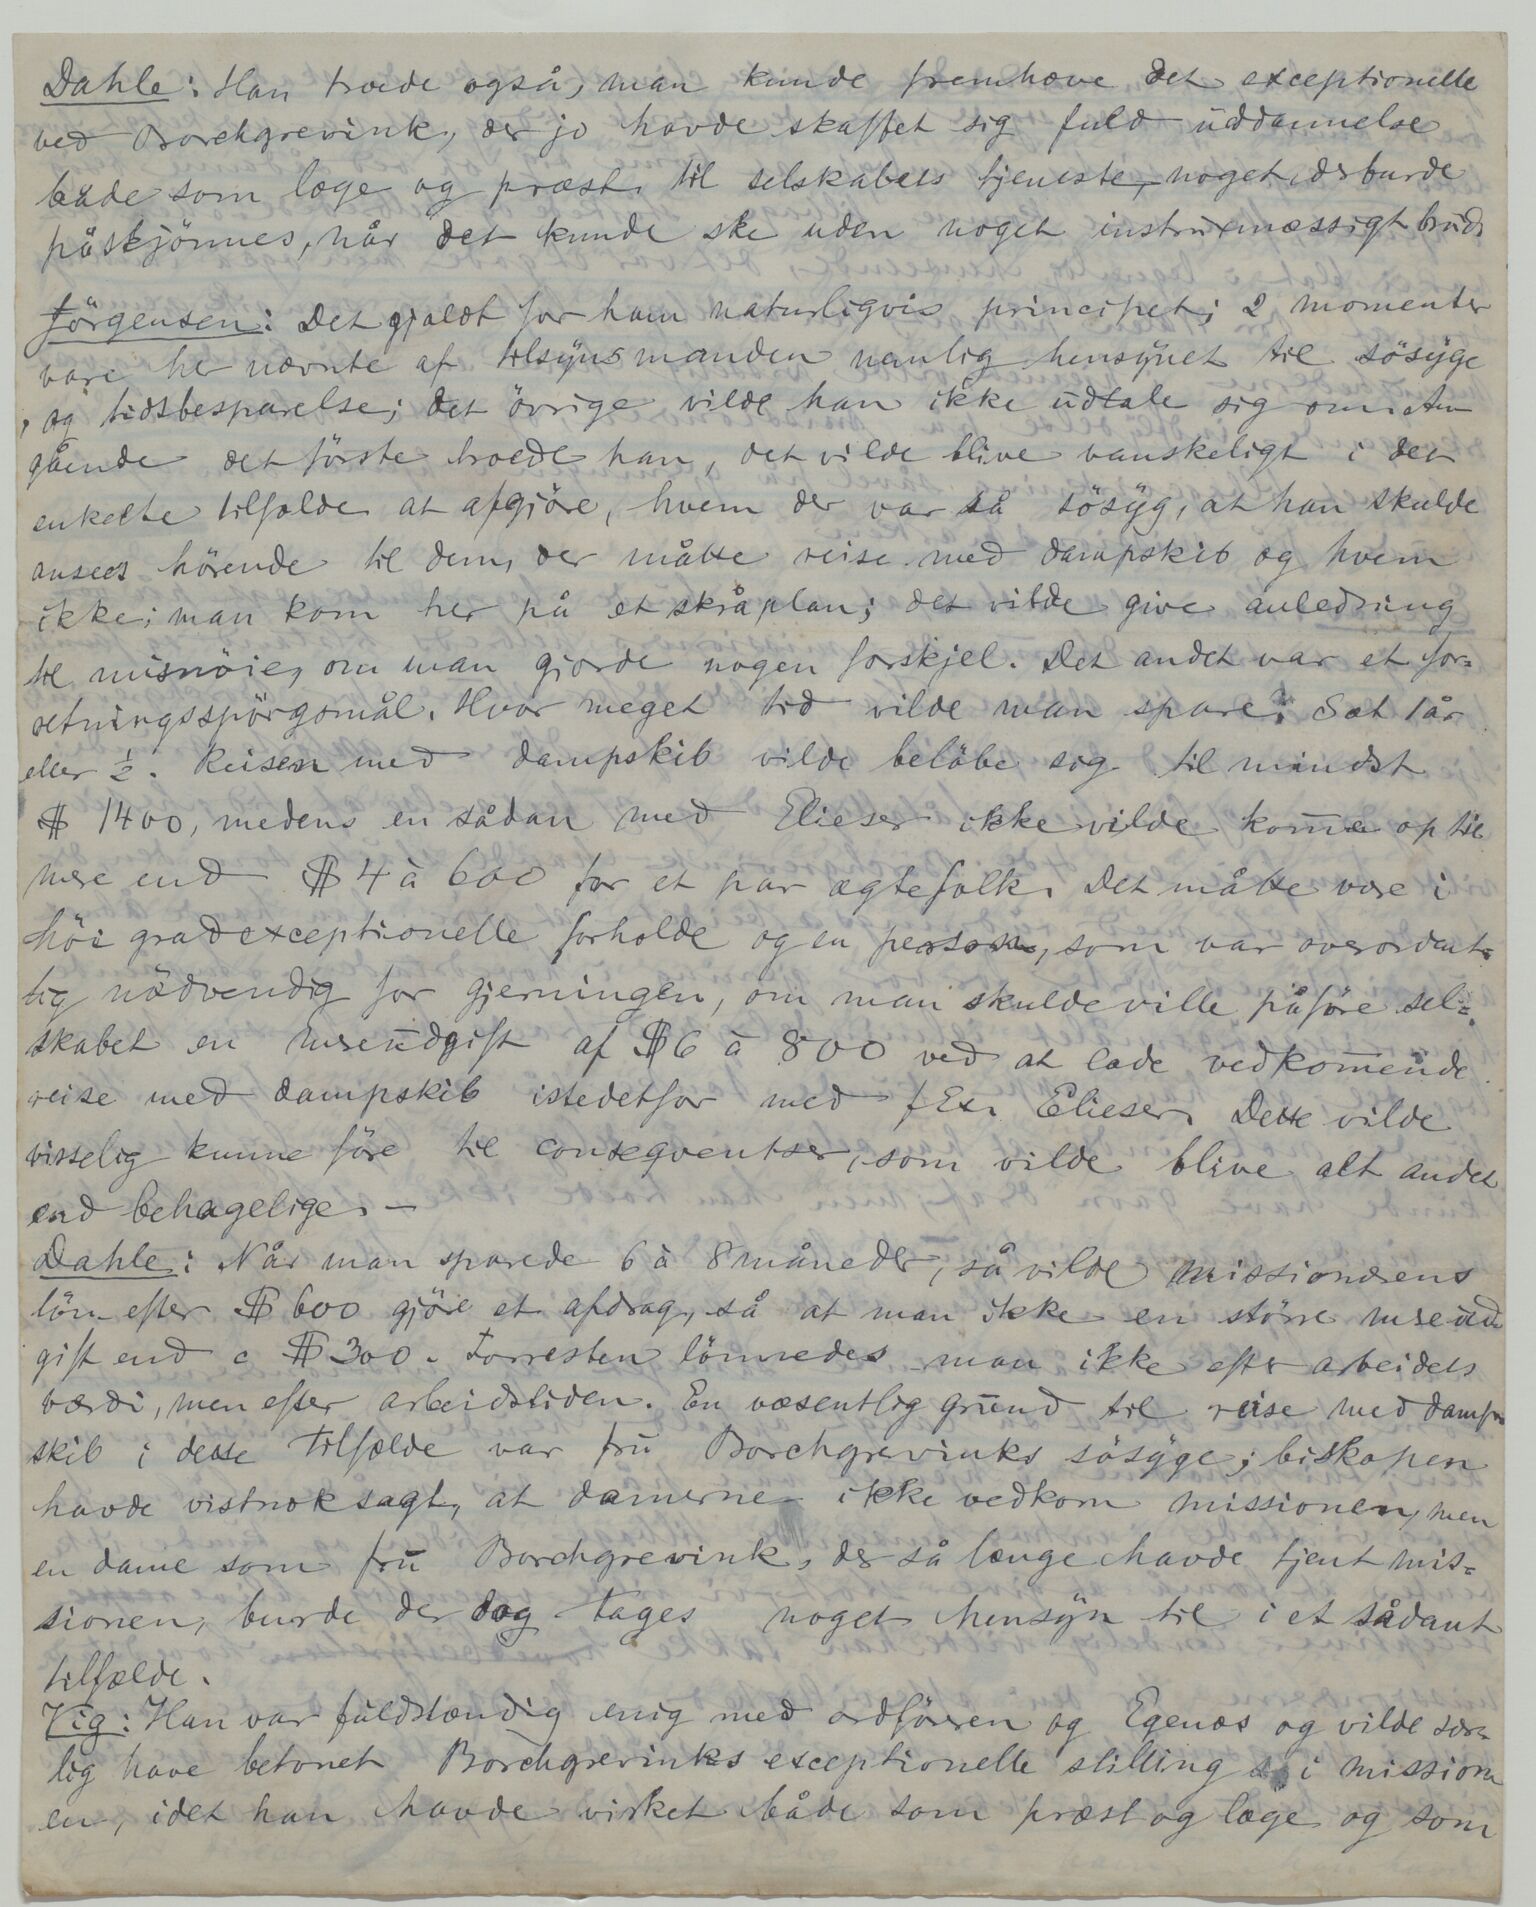 Dahle: Han troede også, man kunde fremhæve det exceptionelle
ved Borchgrevink, der jo havde skaffet sig fuld uddannelse
både som læge og præst til selskabets tjeneste, noget der burde
påskjönnes, når det kunde ske uden noget instruxmæssigt brud.
Jörgensen: Det gjaldt for ham naturligvis principet; 2 momenter
vare her nævnte af tilsynsmanden nemlig hensynet til sösyge
og tidsbesparelse; det övrige vilde han ikke udtale sig om; An-
gående det förste troede han, det vilde blive vanskeligt i det
enkelte tilfælde at afgjöre, hvem der var så sösyg, at han skulde
ansees hörende til dem, der måtte reise med dampskib og hvem
ikke; man kom her på et skråplan; det vilde give anledning
til misnöie, om man gjorde nogen forskjel. Det andet var et for=
retningsspörgsmål. Hvor meget tid vilde man spare? Sæt 1 år
eller ½. Reisen med dampskib vilde belöbe sig til mindst
$ 1400, medens en sådan med Elieser ikke vilde komme op til
mere end $ 4 à 600 for et par ægtefolk. Det måtte være i
höi grad exceptionelle forholde og en person, som var overordent=
lig nödvendig for gjerningen, om man skulde ville påföre sel=
skabet en merudgift af $ 6 à 800 ved at lade vedkommende
reise med dampskib istedetfor med f Ex. Elieser. Dette vilde
visselig kunne före til conseqventser, som vilde blive alt andet
end behagelige. —
Dahle: Når man sparede 6 à 8 måneder, så vilde missionærens
lön efter $ 600 gjöre et afdrag, så at man ikke en större merud
gift end c $ 300. Forresten lönnedes man ikke efter arbeidets
værdi, men efter arbeidstiden. En væsentlig grund til reise med damp=
skib i dette tilfælde var fru Borchgrevinks sösyge; biskopen
havde vistnok sagt, at damerne ikke vedkom missionen, men
en dame som fru Borchgrevink, der så længe havde tjent mis=
sionen, burde der dog tages noget hensyn til i et sådant
tilfælde.
Vig: Han var fuldstændig enig med ordföreren og Egenæs og vilde sær=
lig have betonet Borchgrevinks exceptionelle stilling i mission
en, idet han havde virket både som præst og læge og som